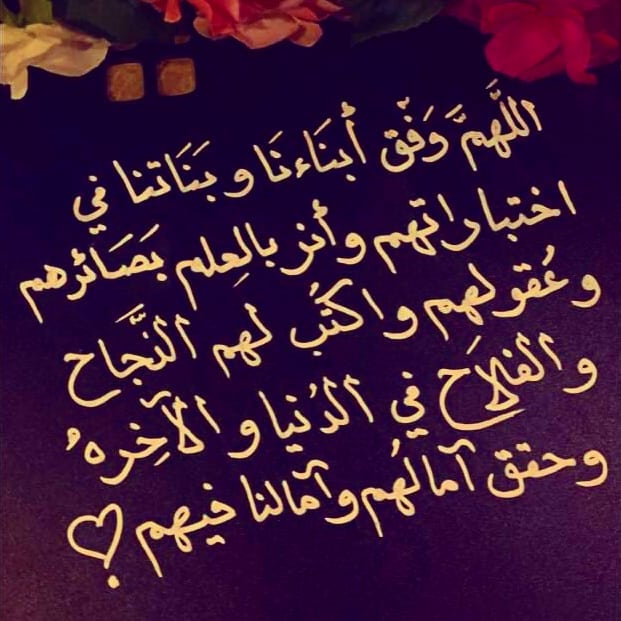 اللَّهمَّ وَفّق أَبنَاءنَا وبنَاتنا في
اختباراتهم وأنر بالعِلم بَصَائرهم
وعُقولهم واكتُب لهم النَّجَاح
والفلاَح في الدُنيا والآخِره
وحقق آمالهُم وآمالنا فيهم